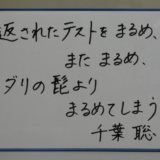 返されたテストをまるめ、
また まるめ、
ダリの髭より
まるめてしまう
千葉 聡